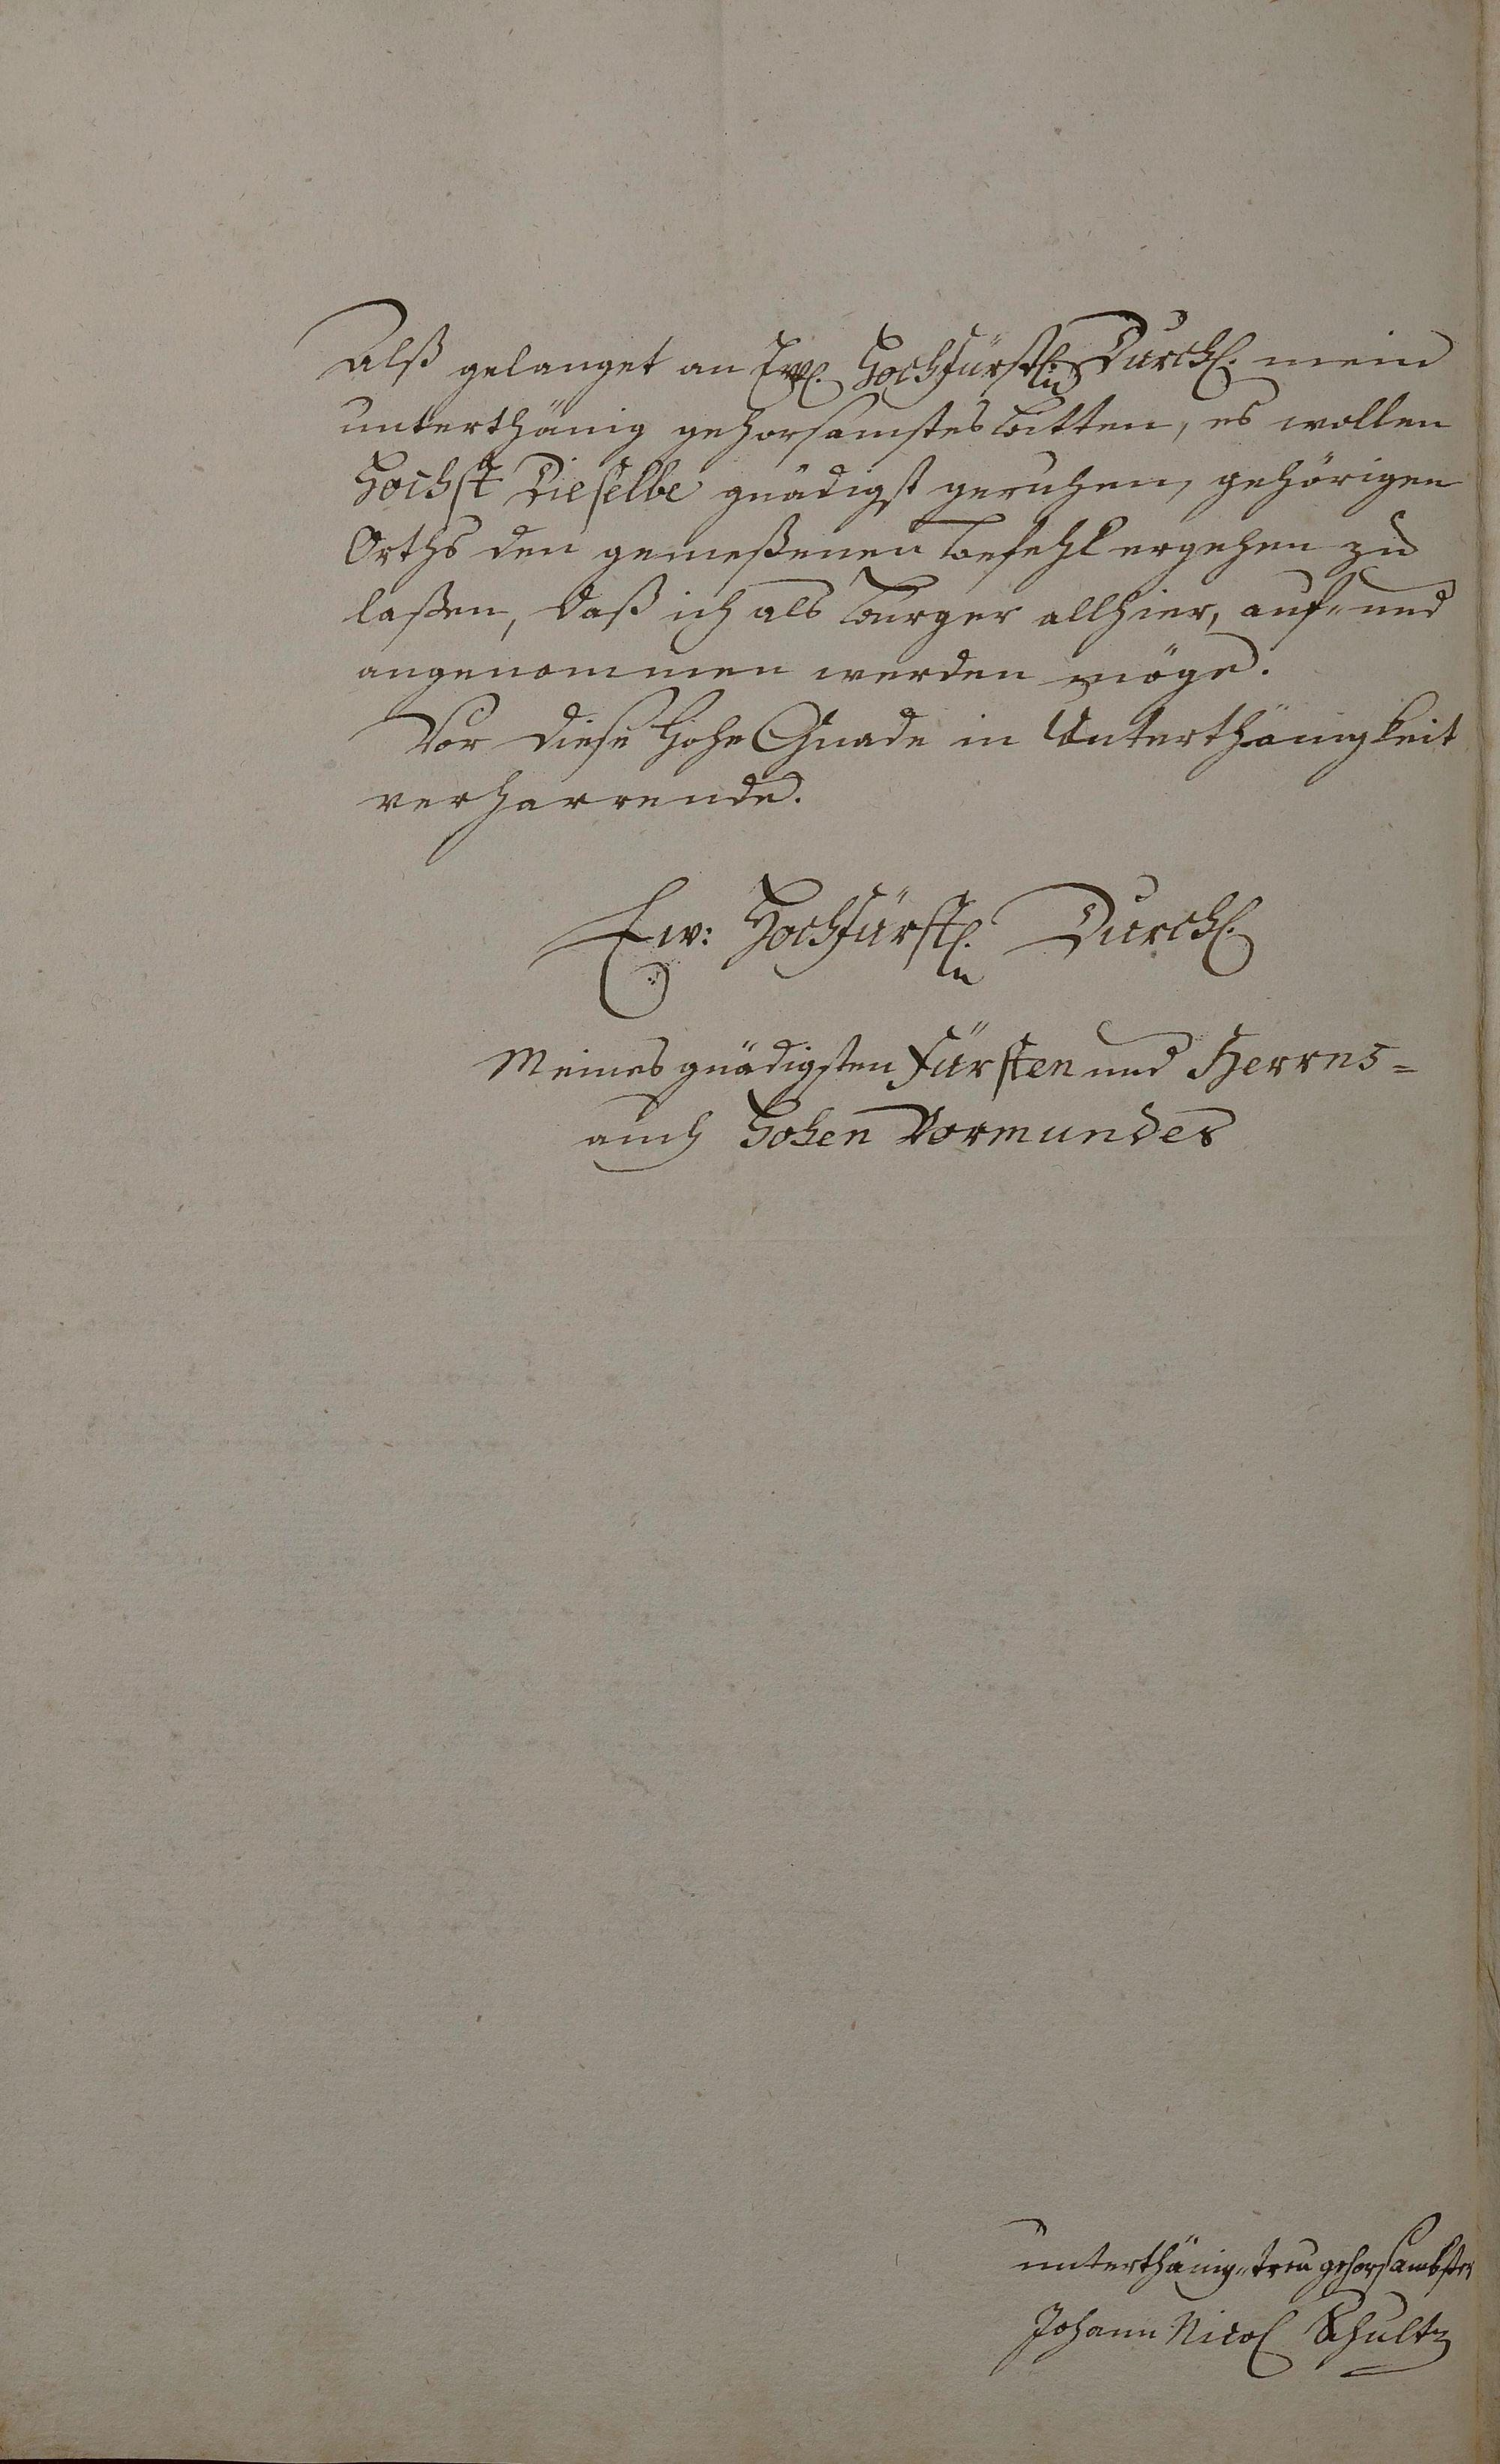 Alß gelanget an Ew. Hochfürstl. Durchl. mein
unterthänig gehorsamstes bitten, es wollen
Hochst Dieselbe gnädigst geruhen, gehörigen
Orths den gemeßenen Befehl ergehen zu
laßen, daß ich als Burger allhier, auf- und
angenommen werden möge.
Vor diese hohe Gnade in Unterthänigkeit
verharrende.
Ew: Hochfürstl. Durchl.
Meines gnädigsten Fürsten und Herrns=
auch Hohen Vormundes
unterthänig-treu gehorsambster
Johann Nicol Schultz